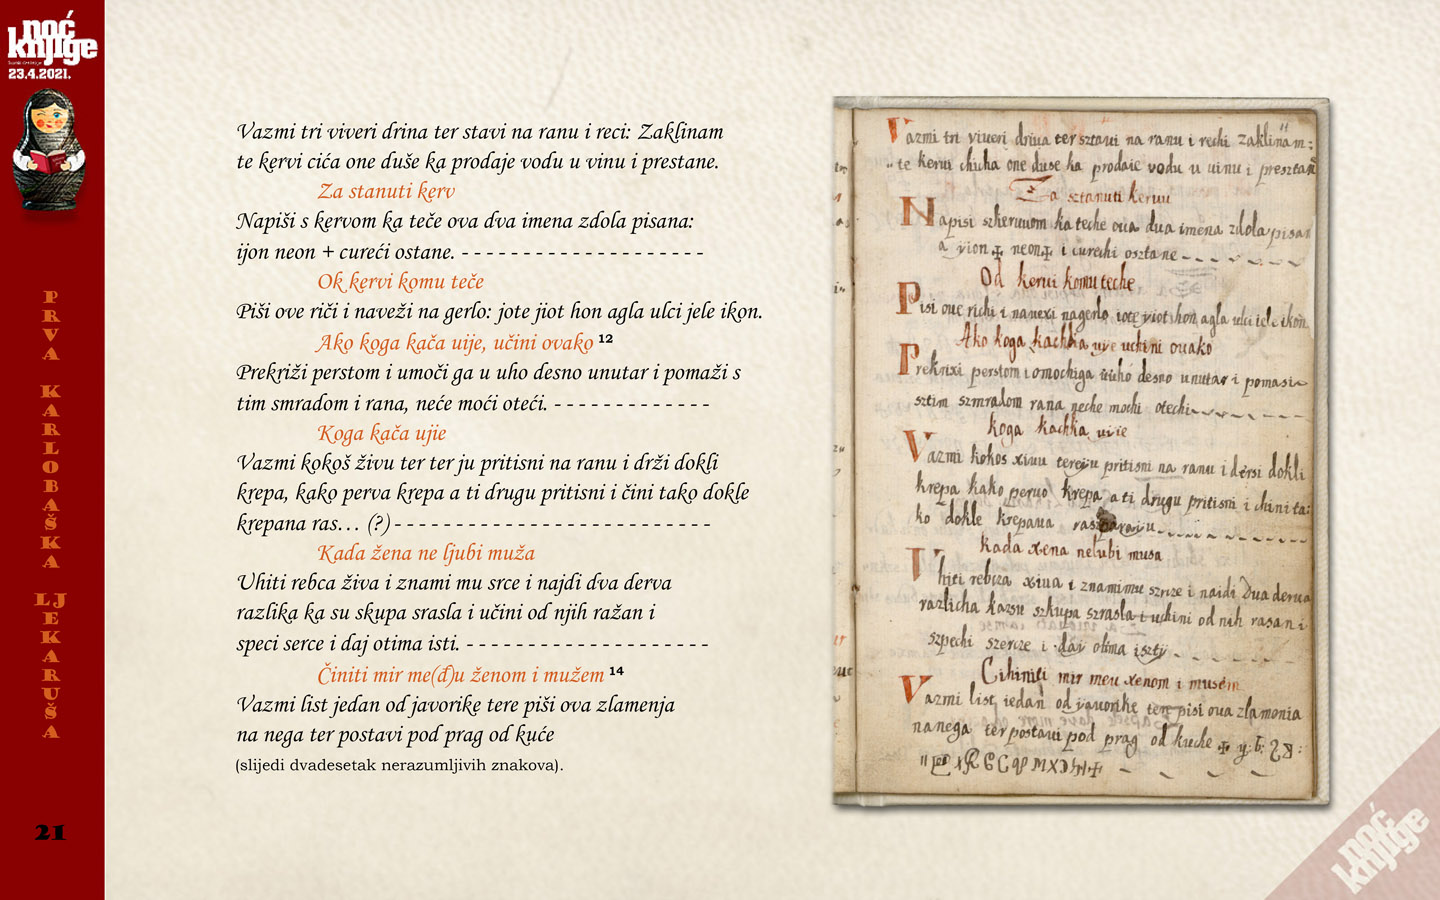 noć
knjige
23.4.2021.
PRVA KARLOBAŠKA LJEKARUŠA
21
Vazmi tri viveri drina ter stavi na ranu i reci: Zaklinam
te kervi cića one duše ka prodaje vodu u vinu i prestane.
Za stanuti kerv
Napiši s kervom ka teče ova dva imena zdola pisana:
ijon neon + cureći ostane. - - - - - - - - - - - - - - - - - - - -
Ok kervi komu teče
Piši ove riči i naveži na gerlo: jote jiot hon agla ulci jele ikon.
Ako koga kača uije, učini ovako 12
Prekriži perstom i umoči ga u uho desno unutar i pomaži s
tim smradom i rana, neće moći oteći. - - - - - - - - - - - - -
Koga kača ujie
Vazmi kokoš živu ter ter ju pritisni na ranu i drži dokli
krepa, kako perva krepa a ti drugu pritisni i čini tako dokle
krepana ras... (?) - - - - - - - - - - - - - - - - - - - - - - - - - -
Kada žena ne ljubi muža
Uhiti rebca živa i znami mu srce i najdi dva derva
razlika ka su skupa srasla i učini od njih ražan i
speci serce i daj otima isti. - - - - - - - - - - - - - - - - - - - -
Činiti mir me(đ)u ženom i mužem 14
Vazmi list jedan od javorike tere piši ova zlamenja
na nega ter postavi pod prag od kuće
(slijedi dvadesetak nerazumljivih znakova).
Vazmi tri viveri drina ter sztaui na ranu i rechi zaklinam:
te kerui chicha one duse ka prodaie vodu u uinu i presztan
Za sztanuti kerui
Napisi szkeruom ka teche oua dua imena zdola pisan
a yion ✠ neon ✠ i curechi osztane
Od kerui komu teche
Pisi oue richi i nauexi nagerlo iote yiot hon agla ulci iele ikon
Ako koga kachka uye uchini ouako
Prekrixi perstom i omochiga uuho desno unutar i pomasi
sztim szmradom rana neche mochi otechi
koga kachka uyie
Vazmi kokos xiuu tereyu pritisni na ranu i dersi dokli
krepa kako peruo krepa a ti drugu pritisni i chini ta:
ko dokle krepaua
kada xena nelubi musa
Vhiti rebcza xiua i znamimu szrze i naidi dua derua
razlicha kasu szkupa szrasla i uchini od nih rasan i
szpechi szercze i day otima iszty
Cihiniti mir meu xenom i musem
Vazmi list iedan od yauorike tere pisi oua zlamonia
nanega ter postaui pod prag od kuche
noć
knjige